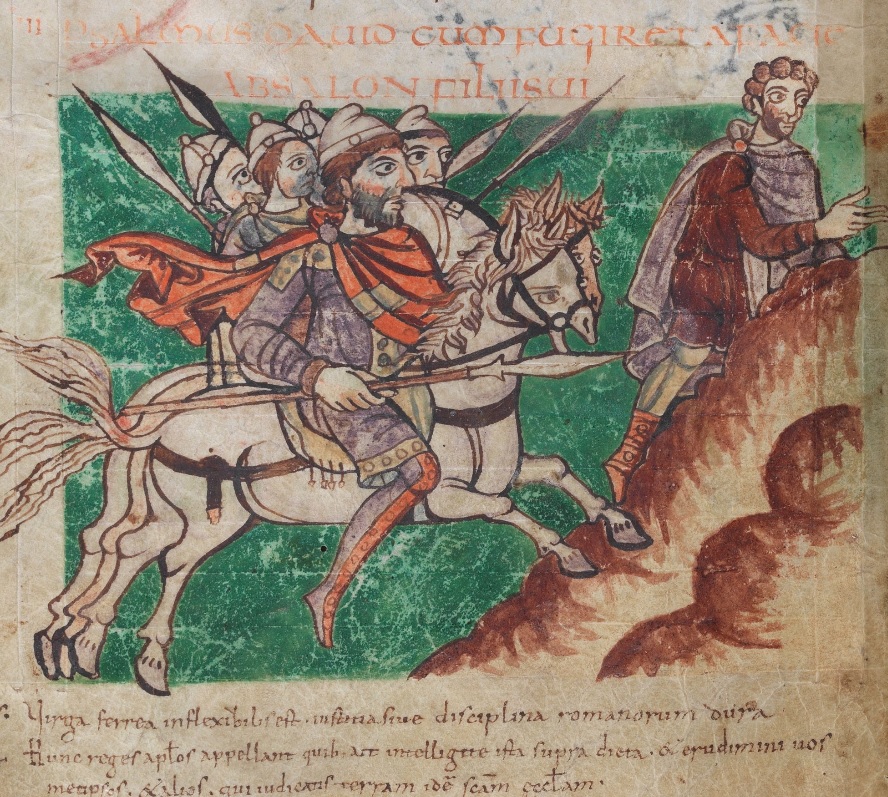 III PSALMUS DAVID CUM FUGIRET A FACIE
ABSALON FILII SUI
Virga ferrea inflexibilis est. iustitia sive disciplina romanorum dura
Hunc reges apłos appellant quib. ait intelligite ista supra dicta. & erudimini vos
metipsos. & alios. qui iudicatis terram idē scām eccłam.